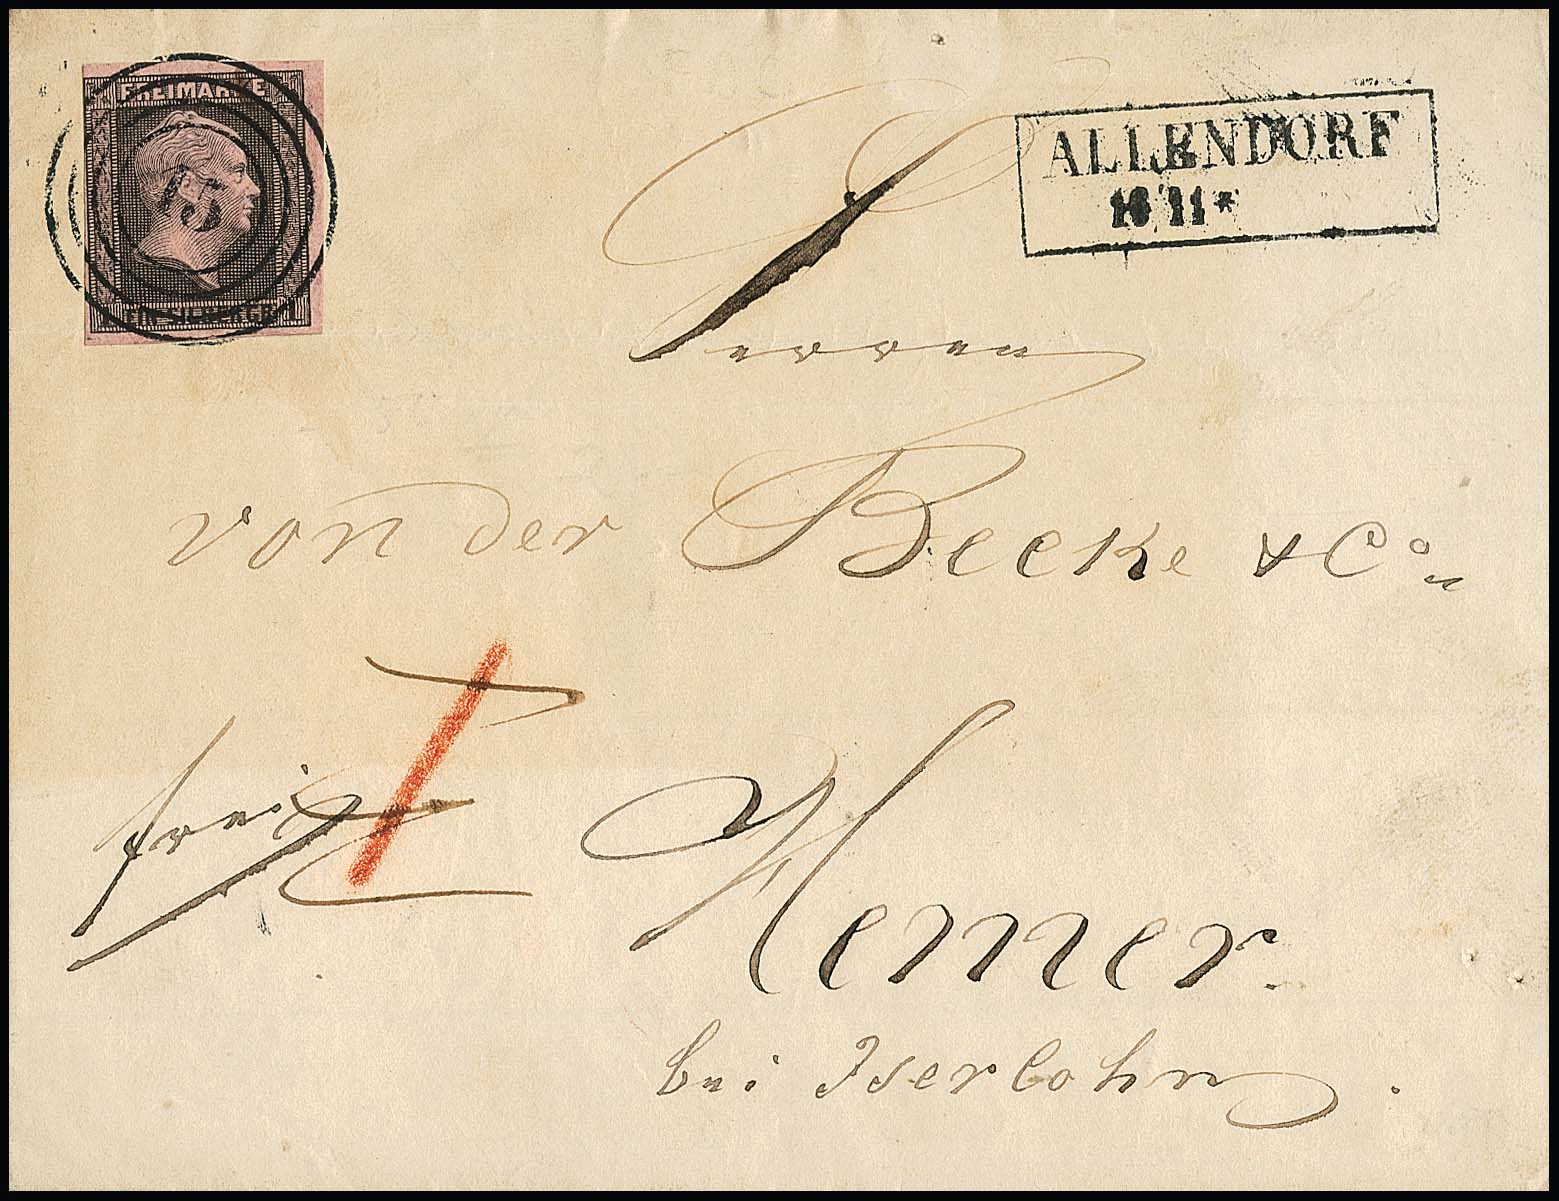 FREIMARKE
15
EIN SILBERGR.
ALLENDORF
16 11 *
Herren
von der Becke & Co
frei
Hemer
bei Iserlohn.